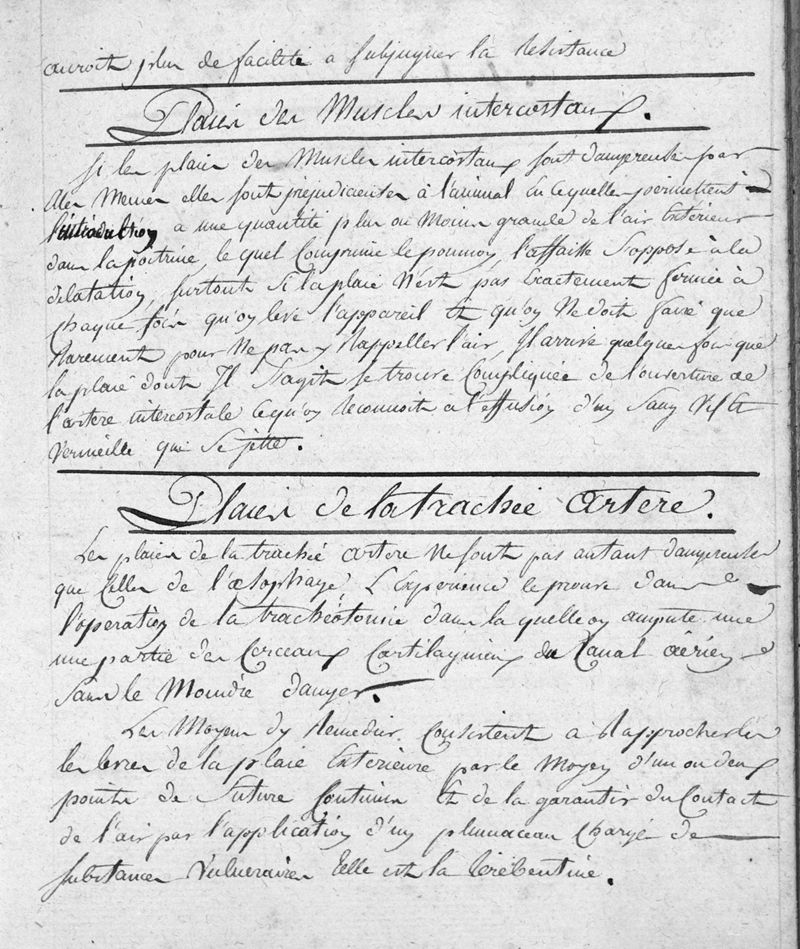 auroit plus de facilité a subjuguer la resistance
Plaies des Muscles intercostaux.
Si les plaies des Muscles intercostaux sont dangereuses par
elles Memes elles sont prejudicientes à l'animal En ce quelles permettent
l'introduction a une quantité plus ou Moins grande de l'air Extérieur
dans la poitrine, le quel Comprime le poumon, l'affaisse s'oppose à la
dilatation, surtout si la plaie N'est pas Exactement fermée à
Chaque fois qu'on leve l'appareil Et qu'on Ne doit faire que
Rarement pour Ne pas y Rappeller l'air, Il arrive quelques fois que
la plaie dont Il s'agit se trouve Compliquée de l'ouverture de
l'artere intercostale Ce qu'on Reconnoit a l'effusion d'un sang Vif Et
Vermeille qui se jette.
Plaies de la trachée artere.
Les plaies de la trachée artere Ne sont pas autant dangereuses
que Celles de l'œsophage, L'Experience le prouve dans
l'operation de la trachéotomie dans la quelle on ampute une
une partie des Cerceaux Cartilagineux du Canal aërien
sans le Moindre danger.
Les Moyens d'y Remedier Consistent à Rapprocher les
les levres de la plaie Exterieure par le Moyen d'un ou deux
points de Suture Continue Et de la garantir du Contact
de l'air par l'application d'un plumaceau Chargé de
substances Vulneraires Telle est la Térébentine.